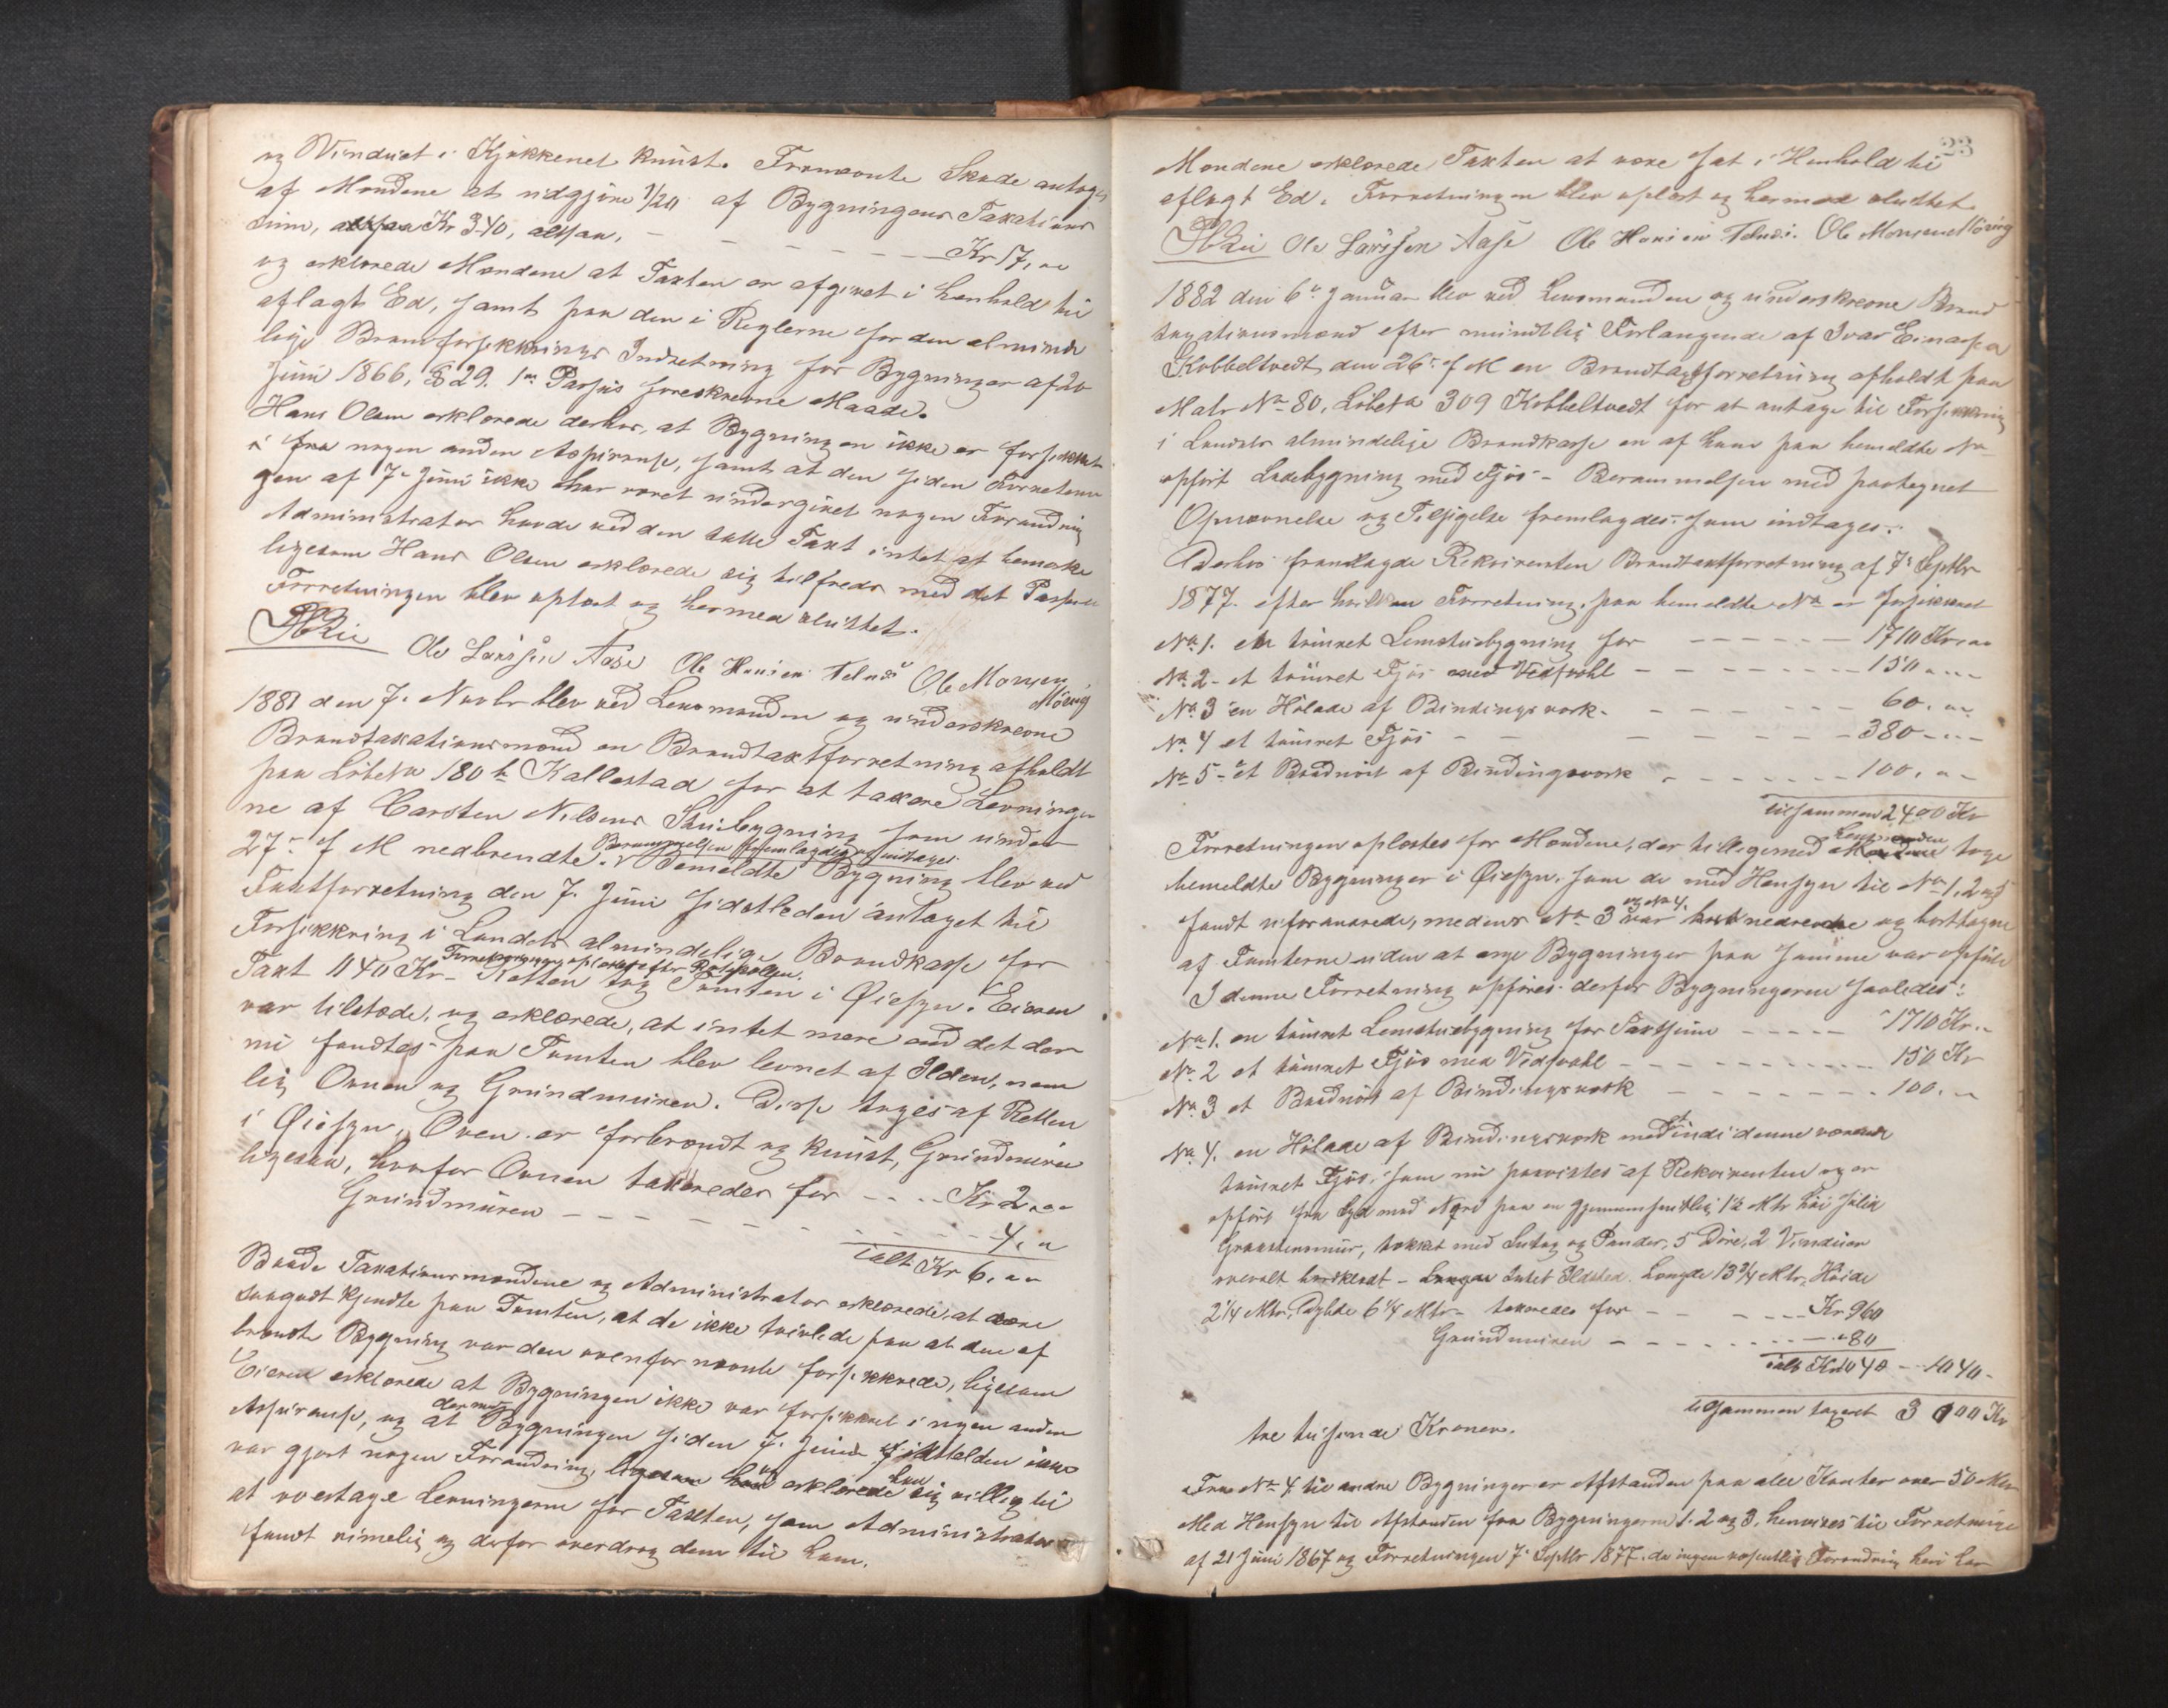 og Vinduet i Kjøkkenet knust. Fremvonte Skade antoges
af Mændene at udgjøre 1/20 af Bygningens Taxations
sum, Kr 340, altsaa, — — — — — — Kr 17, „
og erklærede Mændene at Taxten er afgivet i Henhold til
aflagt Ed, samt paa den i Reglerne for den alminde
lige Brandforsikkrings Indretning for Bygninger af 20
Juni 1866, § 29. 1ste Passus foreskrevne Maade.
Hans Olsen erklærede derhos, at Bygningen ikke er forsikkret
i nogen anden Assuranse, samt at den siden Forretnin
gen af 7de Juni ikke har været undergivet nogen Forandring
Administrator havde ved den satte Taxt intet at bemærke
ligesom Hans Olsen erklærede sig tilfreds med det Passerede
Forretningen blev oplæst og hermed sluttet.
Ole Larssen Aase Ole Hansen Telnæs Ole Monsen
Mövig
1881 den 7. Novbr blev ved Lensmanden og underskrevne
Brandtaxationsmænd en Brandtaxtforretning afholdt
paa Löbe No 180 b Kallestad for at taxere Levninger
ne af Carsten Nilsens Stuebygning som under
Berammelsen fremlagdes og indtages.
27de f M nedbrendte. Bemeldte Bygning blev ved
Taxtforretning den 7. Juni sidstleden antaget til
Forsikkring i Landets almindelige Brandkasse for
Forretningen oplæstes efter
Taxt 1140 Kr. Retten tog Tomten i Øiesyn. Eieren
var tilstede, og erklærede, at intet mere end det der
nu fandtes paa Tomten blev levnet af Ilden, nem
lig Ovnen og Grundmuren. Disse toges af Retten
i Øiesyn, Oven er forbrændt og knust, Grundmuren
ligesaa, hvorfor Ovnen taxeredes for — — Kr 2 „
Grundmuren — — — — — 4, „
ialt Kr 6, „
Baade Taxationsmændene og Administrator erklærede, at være
saagodt kjendte paa Tomten, at de ikke tvivlede paa at den af
brændte Bygning var den ovenfor nævnte forsikkrede, ligesom
Eieren erklærede at Bygningen ikke var forsikkret i nogen anden
Assuranse, og at der med Bygningen siden 7. Juni sidstleden ikke
var gjort nogen Forandring, og erklærede han sig villig til
at overtage Levningerne for Taxten, som Administrator
fandt rimelig og derfor overdrog dem til ham.
23
Mændene erklærede Taxten at være sat i Henhold til
aflagt Ed. Forretningen blev oplæst og hermed sluttet.
Ole Larssen Aase Ole Hansen Telnæs. Ole Monsen Möviig
1882 den 6te Januar blev ved Lensmanden og underskrevne Brand
taxationsmænd efter mundtlig Forlangende af Ivar Einarsen
Kobbeltvedt den 26de f M en Brandtaxtforretning afholdt paa
Matr No 80, Löbe No 309 Kobbeltvedt for at antage til Forsikkring
i Landets almindelige Brandkasse en af ham paa bemeldte No
opført Ladebygning med Fjøs — Berammelsen med paategnet
Opnævnelse og Tilsigelse fremlagdes som indtages:
Derhos fremlagde Rekvirenten Brandtaxtforretning af 7de Septbr
1877. efter hvilken Forretning, paa bemeldte No er forsikkret
No 1. en tømret Lemstuebygning for — — — — 1710 Kr „
No 2 - et tømret Fjös med Vedskohl — — — — 150 „
No 3 en Hölade af Bindingsverk — — — — 60. „
No 4 et tømret Fjös — — — — 380 - „
No 5 - et Baadnöst af Bindingsverk — — — — 100. „
tilsammen 2400 Kr
Forretningen oplæstes for Mændene, der tilligemed Lensmanden toge
bemeldte Bygninger i Øiesyn, som de med Hensyn til No 1, 2 og 5
fandt uforandrede, medens No 3 og No 4. var nedrevne og borttagne
af Tomterne uden at nye Bygninger paa samme var opført
I denne Forretning opføres derfor Bygningerne saaledes:
No 1. en tømret Lemstuebygning for Taxtsum — — — 1710 Kr „
No 2 et tømret Fjös med Vedskohl — — — — 150 Kr
No 3 et Baadnöst af Bindingsverk — — — — 100. „
No 4. en Hölade af Bindingsverk med et indi denne værende
tømret Fjös, som nu paavistes af Rekvirenten og er
opført fra Syd mod Nord paa en gjennemsnitlig 1½ Mtr høi solid
Graastensmur, tækket med Sutag og Pander, 5 Døre, 2 Vinduer
overalt bordklædt — Intet Ildsted. Længde 13¾ Mtr, Høide
2¼ Mtr, Dybde 6¼ Mtr — taxeredes for — — — Kr 960
Grundmuren — — — — „ 80
ialt Kr 1040 — 1040 -
tilsammen taxeret 3000 Kr
tre tusende Kroner.
Fra No 4 til andre Bygninger er Afstanden paa alle Kanter over 50 Mtr
Med Hensyn til Afstanden fra Bygningerne 1. 2 og 3, henvises til Forretninger
af 21 Juni 1867 og Forretningen 7de Septbr 1877. da ingen væsentlig Forandring heri har